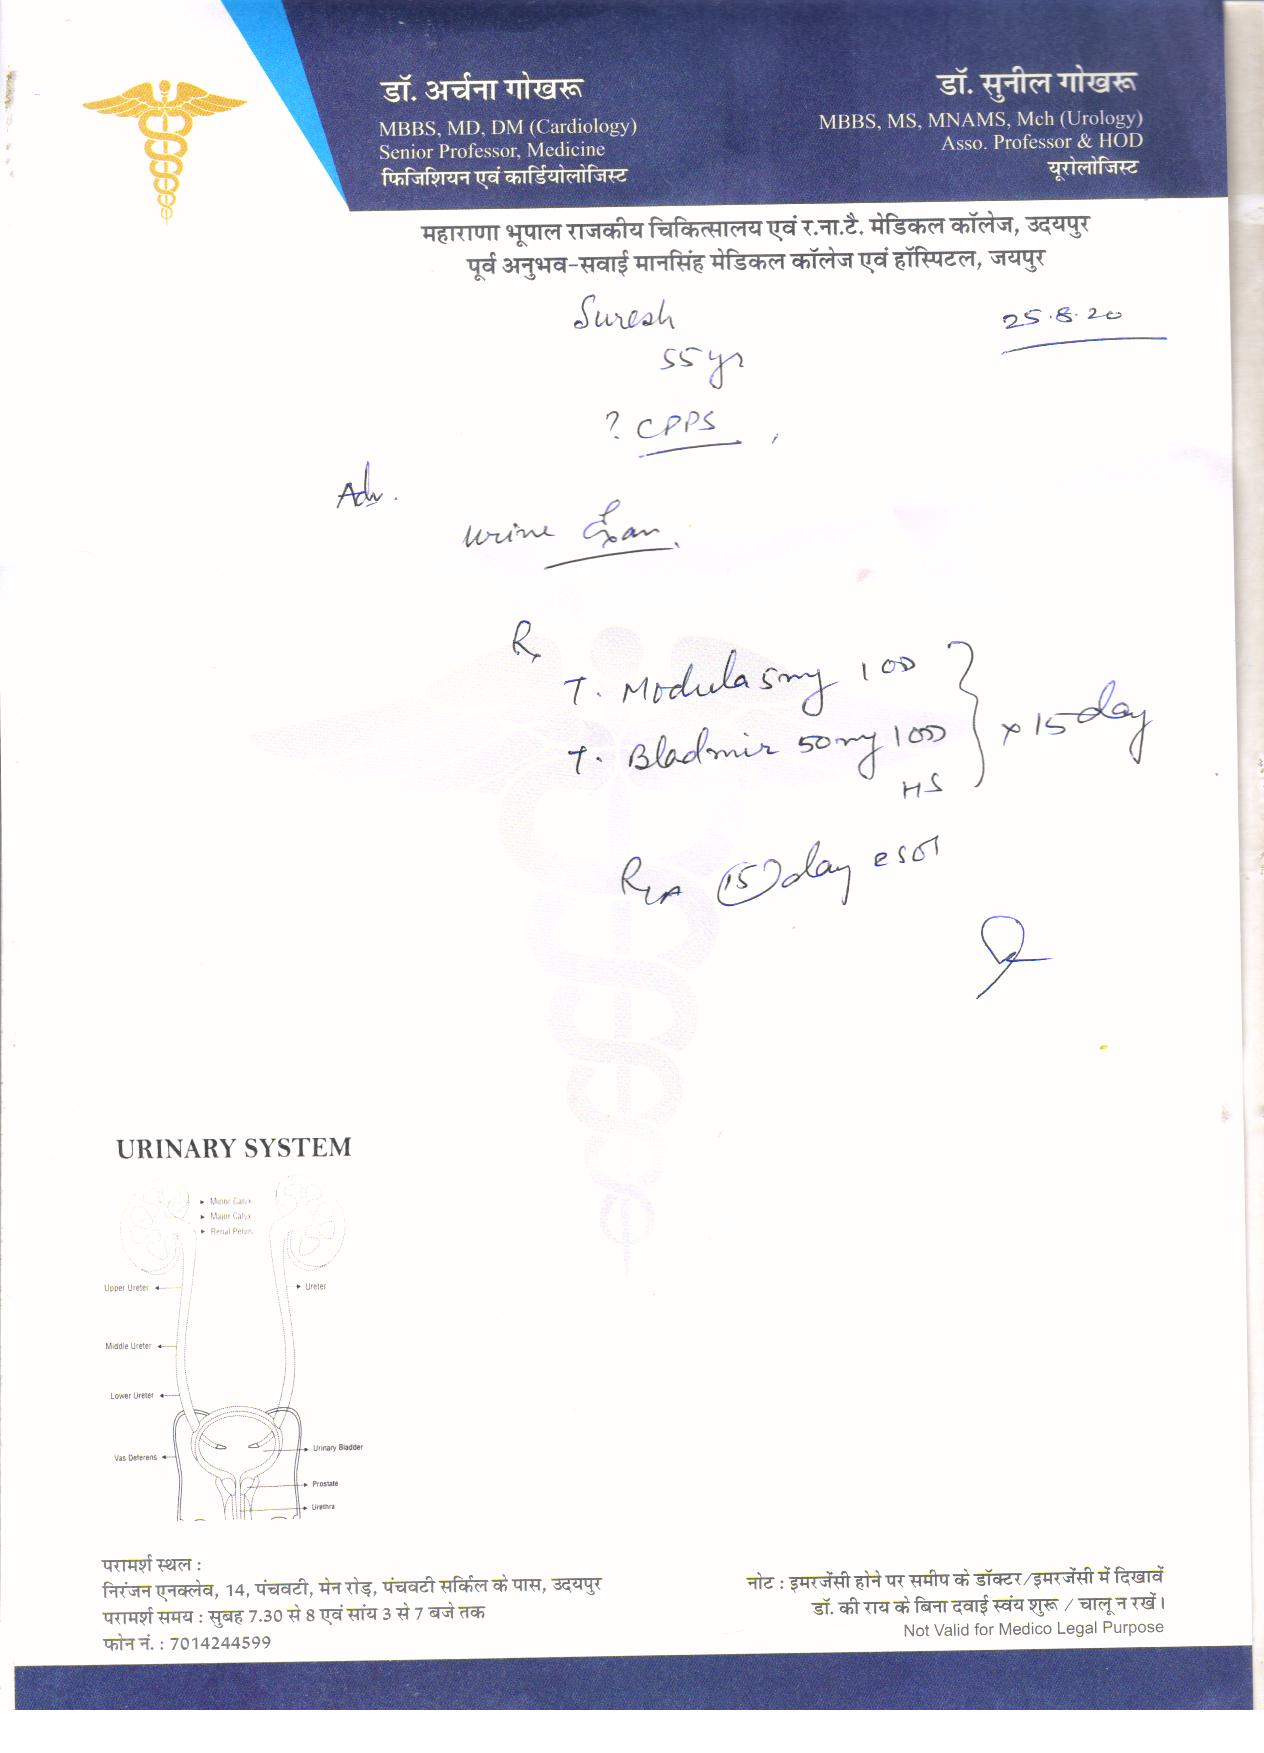 डॉ. अर्चना गोखरू
MBBS, MD, DM (Cardiology)
Senior Professor, Medicine
फिजिशियन एवं कार्डियोलोजिस्ट
डॉ. सुनील गोखरू
MBBS, MS, MNAMS, Mch (Urology)
Asso. Professor & HOD
यूरोलोजिस्ट
महाराणा भूपाल राजकीय चिकित्सालय एवं र.ना.टै. मेडिकल कॉलेज, उदयपुर
पूर्व अनुभव-सवाई मानसिंह मेडिकल कॉलेज एवं हॉस्पिटल, जयपुर
Suresh
25.8.20
55 yr
? CPPS
Adv.
Urine Exam.
Rx
T. Modula 5mg 1 OD
T. Bladmir 50mg 1 OD
HS
} x 15 day
(15) day
URINARY SYSTEM
Minor Calyx
Major Calyx
Renal Pelvis
Upper Ureter
Ureter
Middle Ureter
Lower Ureter
Urinary Bladder
Vas Deferens
Prostate
Urethra
परामर्श स्थल :
निरंजन एनक्लेव, 14, पंचवटी, मेन रोड़, पंचवटी सर्किल के पास, उदयपुर
परामर्श समय : सुबह 7.30 से 8 एवं सांय 3 से 7 बजे तक
फोन नं. : 7014244599
नोट : इमरजेंसी होने पर समीप के डॉक्टर/इमरजेंसी में दिखावें
डॉ. की राय के बिना दवाई स्वंय शुरू / चालू न रखें।
Not Valid for Medico Legal Purpose